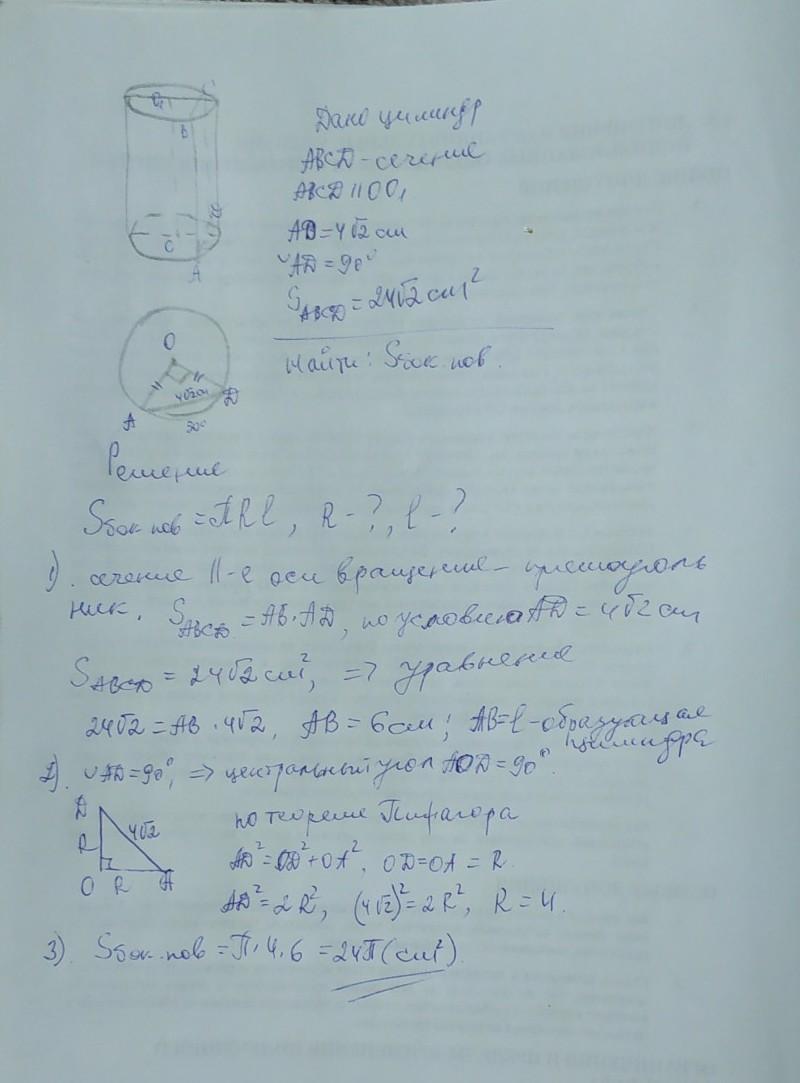 O₁ C
B
Дано цилиндр
ABCD - сечение
ABCD || OO₁
AD = 4√2 см
◡AD = 90°
S_ABCD = 24√2 см²
O
D
A
Найти: Sбок. пов.
O
4√2см
A D
90°
Решение
Sбок пов = πRl, R - ?, l - ?
1). сечение ||-е оси вращения - прямоуголь
ник. S_ABCD = AB·AD, по условию AD = 4√2 см
S_ABCD = 24√2 см², => уравнение
24√2 = AB · 4√2, AB = 6 см; AB = l - образующая
цилиндра
2). ◡AD = 90°, => центральный угол AOD = 90°.
D
R 4√2
O R A
по теореме Пифагора
AD² = OD² + OA², OD = OA = R.
AD² = 2R², (4√2)² = 2R², R = 4.
3). Sбок. пов = π·4·6 = 24π (см²).